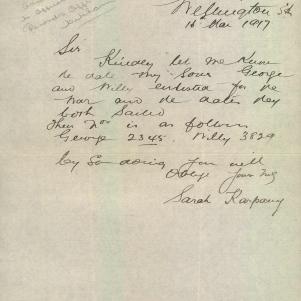 Wellington St
16th Mar 1917
Sir
Kindly let me know
the date my Sons George
and Willy enlisted for the
War and the dates they
both Sailed
Their Nos is as follows
George 2345. Willy 3829
by So doing you will
Oblige Yours Truly
Sarah Karpany